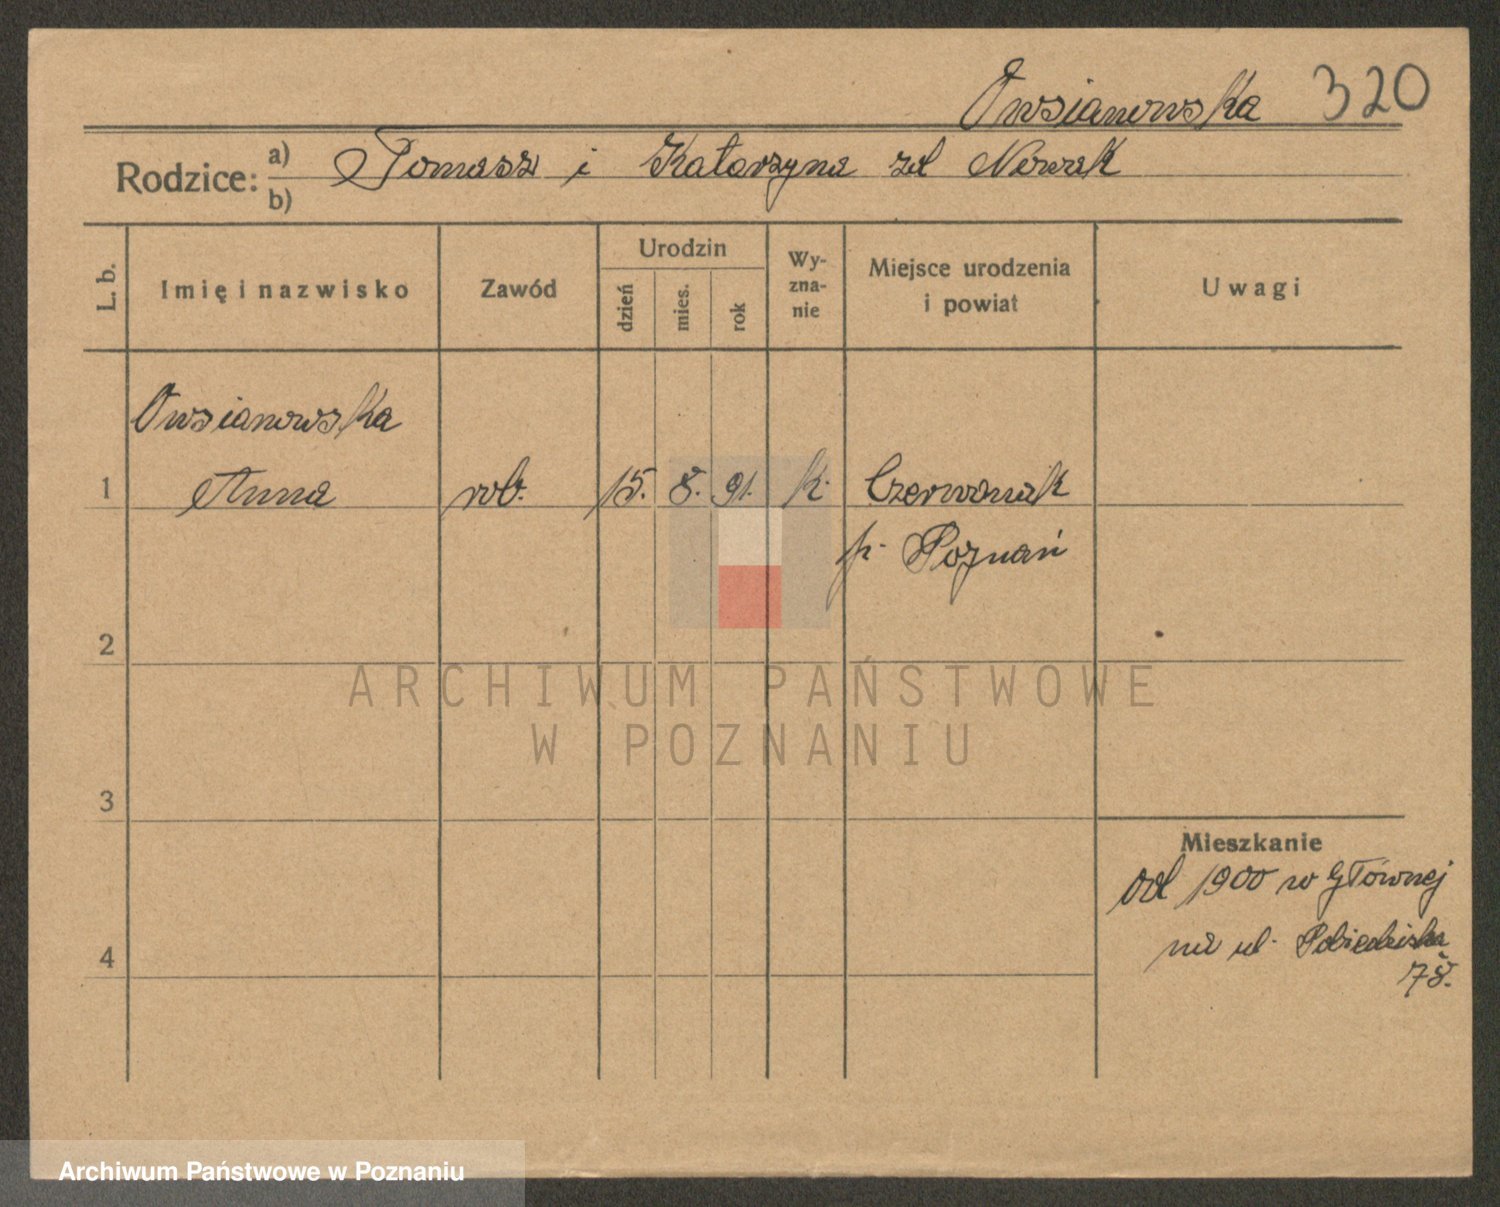 Owsianowska 320
Rodzice: a) Tomasz i Katarzyna zd Nowak
b)
L. b.
Imię i nazwisko
Zawód
Urodzin
dzień
mies.
rok
Wy-
zna-
nie
Miejsce urodzenia
i powiat
Uwagi
Owsianowska
1 Anna rob. 15. 8. 91. k. Czerwonak
p. Poznań
2
ARCHIWUM PAŃSTWOWE
W POZNANIU
3
Mieszkanie
od 1900 w Głównej
4 na ul. Pobiedziska
78.
Archiwum Państwowe w Poznaniu